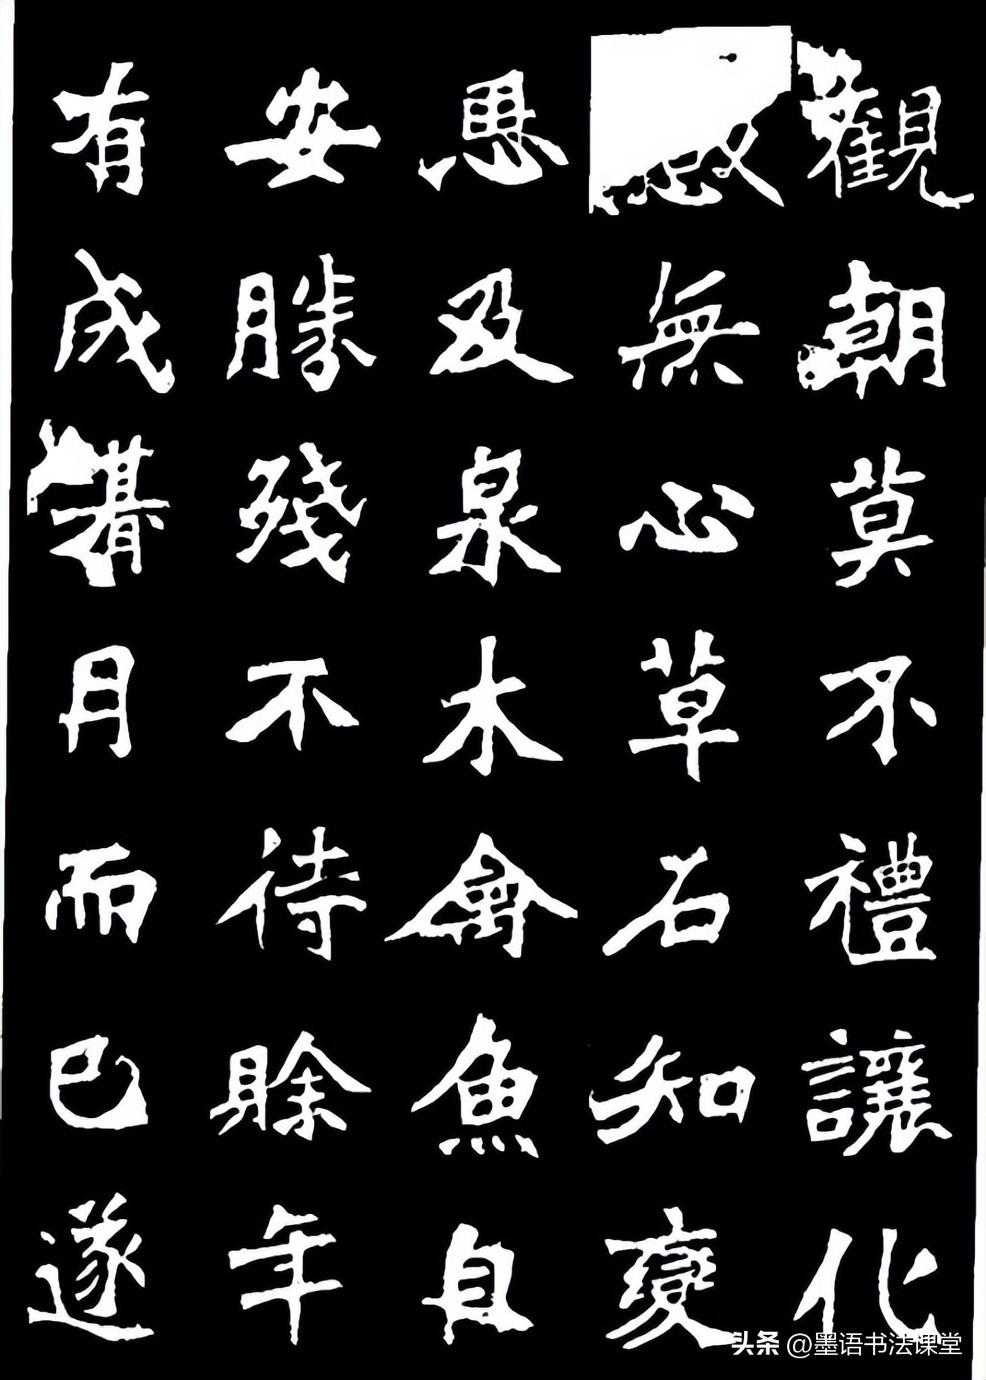 觀朝莫不禮讓化
無心草石知變
恩及泉木禽魚自
安勝殘不待賒年
有成朞月而已遂
头条 @墨语书法课堂